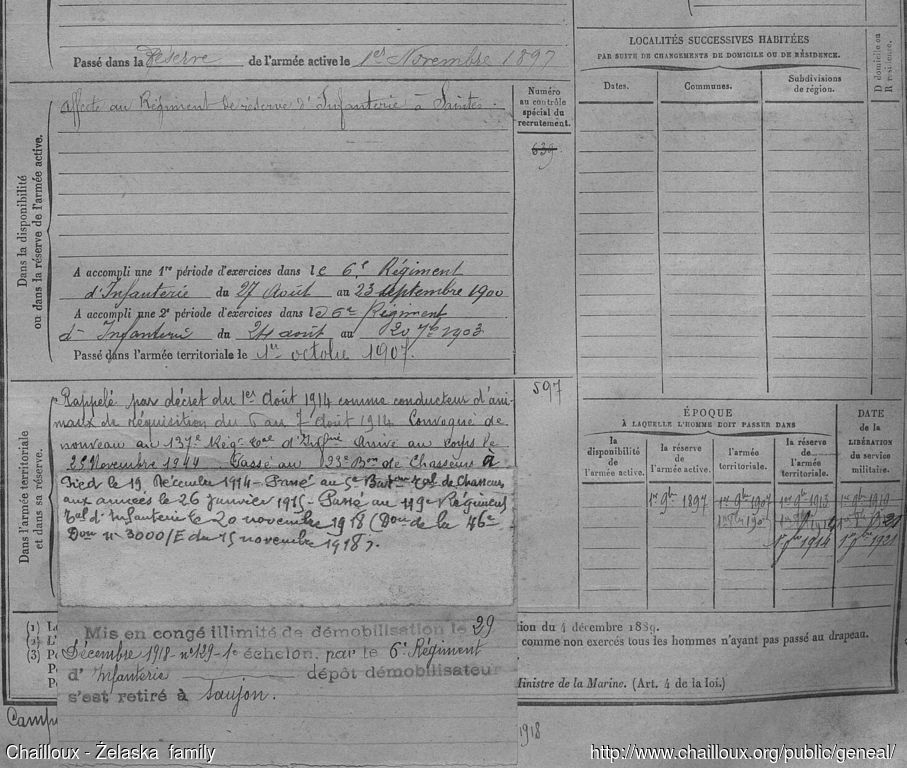 Passé dans la Réserve de l'armée active le 1er Novembre 1897
Dans la disponibilité
ou dans la réserve de l'armée active.
affecté au Régiment de réserve d'Infanterie à Saintes.
Numéro
au contrôle
spécial du
recrutement.
639
A accompli une 1re période d'exercices dans le 6e Régiment
d'Infanterie du 27 Août au 23 septembre 1900
A accompli une 2e période d'exercices dans le 6e Régiment
d'Infanterie du 24 août au 20 7bre 1903
Passé dans l'armée territoriale le 1er octobre 1907.
Dans l'armée territoriale
et dans sa réserve.
597
Rappelé par décret du 1er Août 1914 comme conducteur d'ani-
maux de réquisition du 6 au 7 Août 1914 Convoqué de
nouveau au 137e Rég. d'Infrie Arrivé au corps le
25 Novembre 1914 Passé au Bon de Chasseurs à
Pied le 19 Décembre 1914 - Passé au 5e Baton Tal de Chasseurs
aux armées le 26 janvier 1915 - Passé au 119e Régiment
Tal d'Infanterie le 20 novembre 1918 (Don de la 76e
Don n° 3000/E du 15 novembre 1918).
Mis en congé illimité de démobilisation le 29
Décembre 1918 - n° 129 - 1e échelon, par le 6e Régiment
d'Infanterie dépôt démobilisateur
s'est retiré à Saujon.
LOCALITÉS SUCCESSIVES HABITÉES
PAR SUITE DE CHANGEMENTS DE DOMICILE OU DE RÉSIDENCE.
Dates. Communes. Subdivisions
de région.
D domicile ou
R résidence.
ÉPOQUE
À LAQUELLE L'HOMME DOIT PASSER DANS
DATE
de la
LIBÉRATION
du service
militaire.
la
disponibilité
de l'armée active.
la réserve
de
l'armée active.
l'armée
territoriale.
la réserve
de
l'armée
territoriale.
1er 9bre 1897 1er 9bre 1907 1er 9bre 1913 1er 9bre 1919
1er 9bre 1914 1er 9bre 1921
(1)
(2)
(3)
tion du 4 décembre 1889.
comme non exercés tous les hommes n'ayant pas passé au drapeau.
Ministre de la Marine. (Art. 4 de la loi.)
1918
Chailloux - Żelaska family
http://www.chailloux.org/public/geneal/